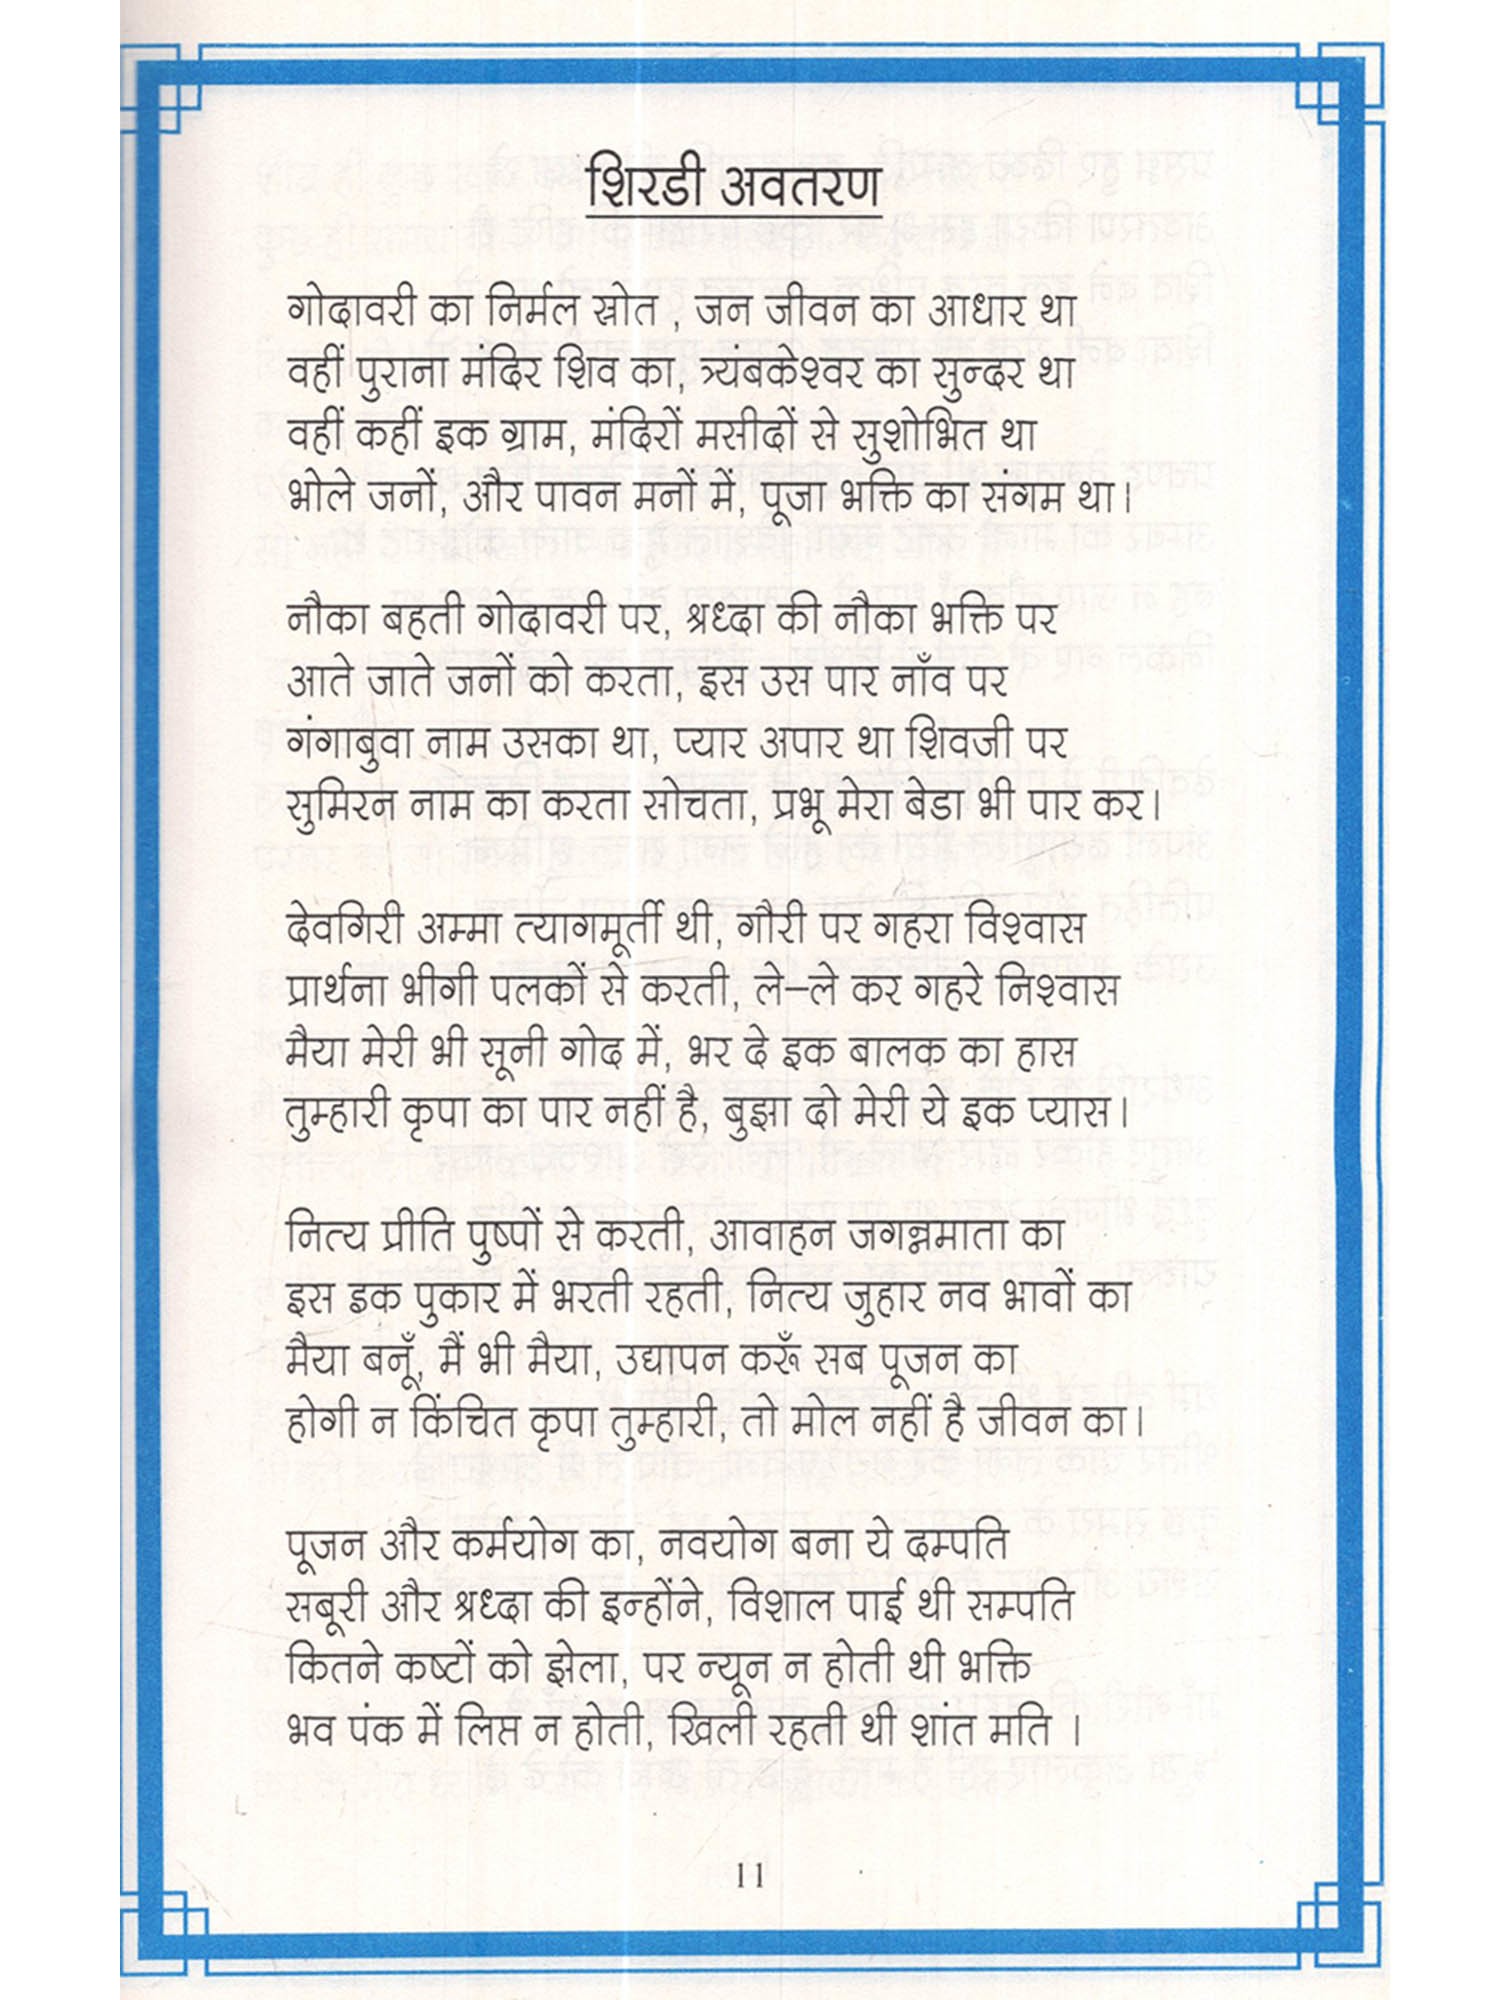 शिरडी अवतरण
गोदावरी का निर्मल स्रोत , जन जीवन का आधार था
वहीं पुराना मंदिर शिव का, त्र्यंबकेश्वर का सुन्दर था
वहीं कहीं इक ग्राम, मंदिरों मसीदों से सुशोभित था
भोले जनों, और पावन मनों में, पूजा भक्ति का संगम था।
नौका बहती गोदावरी पर, श्रध्दा की नौका भक्ति पर
आते जाते जनों को करता, इस उस पार नाँव पर
गंगाबुवा नाम उसका था, प्यार अपार था शिवजी पर
सुमिरन नाम का करता सोचता, प्रभू मेरा बेडा भी पार कर।
देवगिरी अम्मा त्यागमूर्ती थी, गौरी पर गहरा विश्वास
प्रार्थना भीगी पलकों से करती, ले–ले कर गहरे निश्वास
मैया मेरी भी सूनी गोद में, भर दे इक बालक का हास
तुम्हारी कृपा का पार नहीं है, बुझा दो मेरी ये इक प्यास।
नित्य प्रीति पुष्पों से करती, आवाहन जगन्नमाता का
इस इक पुकार में भरती रहती, नित्य जुहार नव भावों का
मैया बनूँ, मैं भी मैया, उद्यापन करूँ सब पूजन का
होगी न किंचित कृपा तुम्हारी, तो मोल नहीं है जीवन का।
पूजन और कर्मयोग का, नवयोग बना ये दम्पति
सबूरी और श्रध्दा की इन्होंने, विशाल पाई थी सम्पति
कितने कष्टों को झेला, पर न्यून न होती थी भक्ति
भव पंक में लिप्त न होती, खिली रहती थी शांत मति ।
11